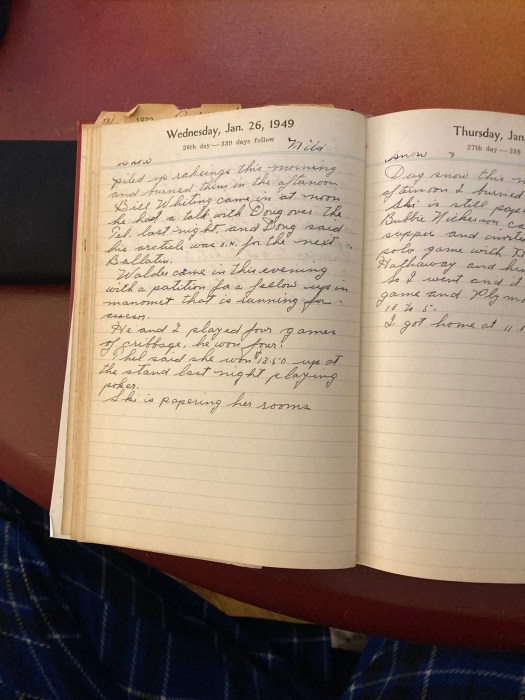 Wednesday, Jan. 26, 1949
26th day — 339 days follow
Mild
piled up rakeings this morning
and burned them in the afternoon
Bill Whiting came in at noon
he had a talk with Doug over the
Tel. last night, and Doug said
his article was o.k. for the next
Ballatin.
Waldo came in this evening
with a patition for a fellow up in
manomet that is running for
He and I played four games
of cribbage, he won four.
Thel said she won $13.50 up at
the stand last night playing
poker.
Ski is papering her rooms
Thursday, Jan
27th day — 338
snow
Dug snow this m
afternoon I burned
Ski is still pape
Bubbie Nickerson ca
supper and invite
polo game with
Hathaway and his
so I went and it
game and Plym
10 to 5.
I got home at 11